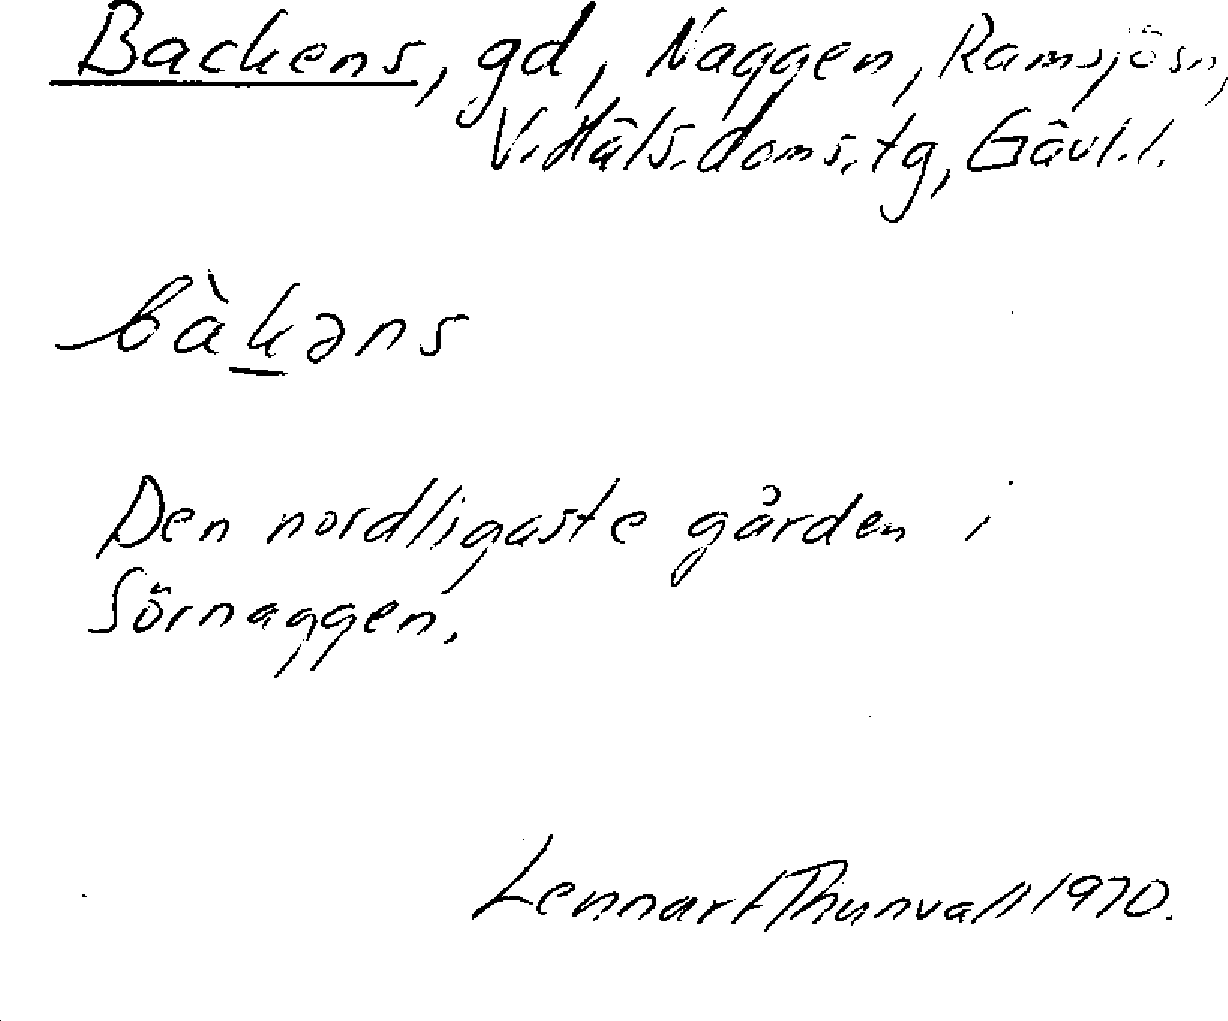 Backens, gd, Naggen, Ramsjösn,
V. Häls. doms. tg, Gävl. l.
bàkəns
Den nordligaste gården i
Sörnaggen.
Lennart Thunvall 1970.